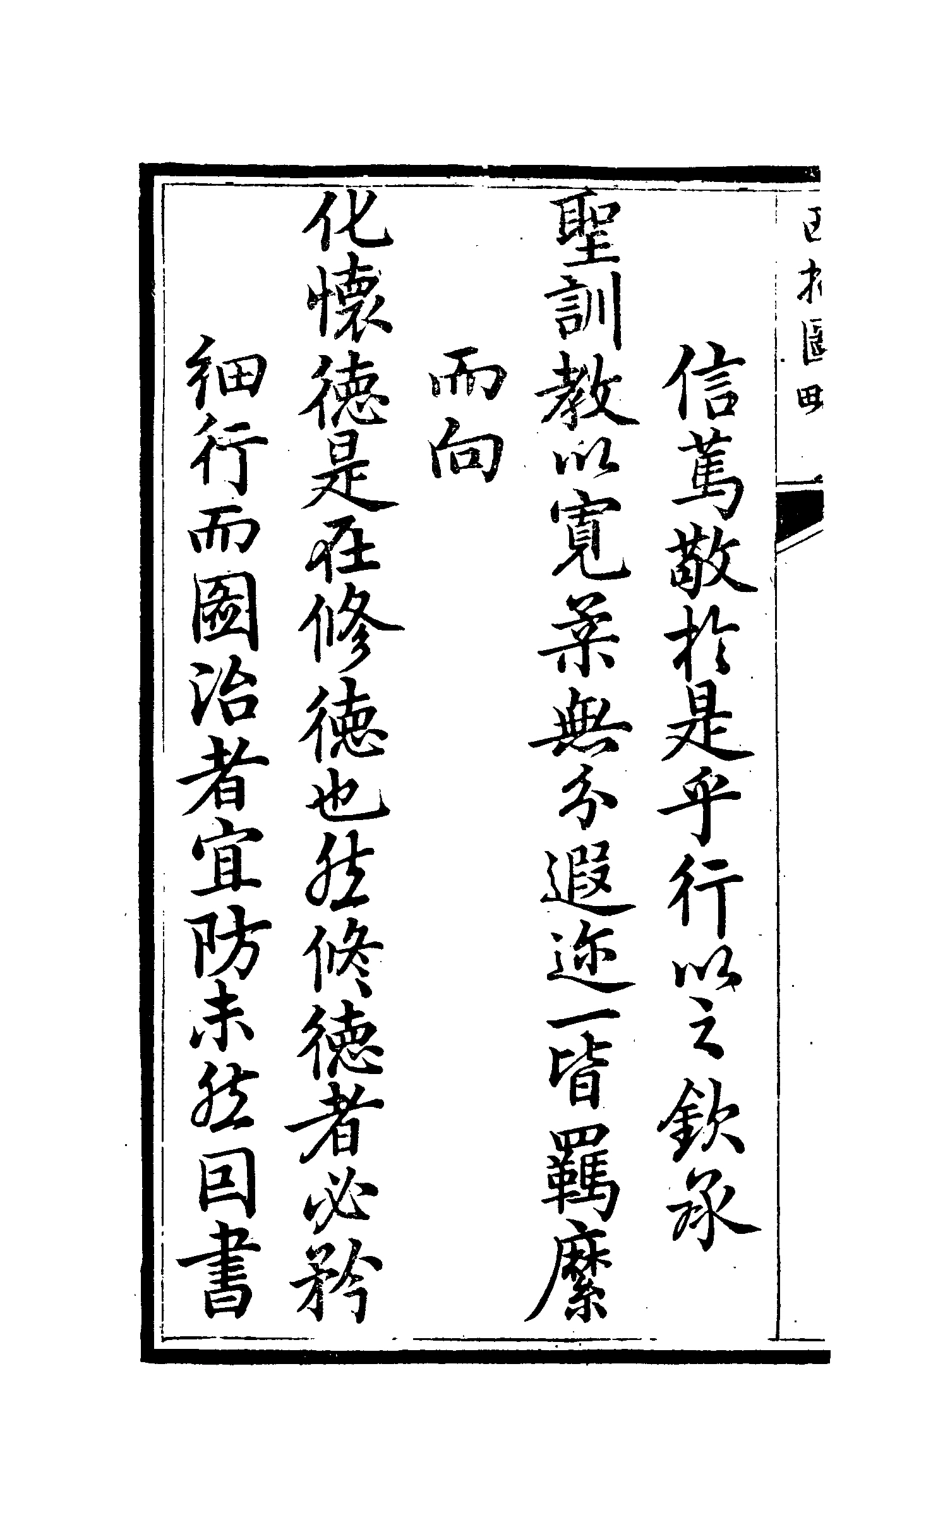 信篤敬於是乎行以之欽承
聖訓教以寬柔無分遐迩一皆羈縻
而向
化懷德是在修德也然修德者必矜
細行而圖治者宜防未然因書